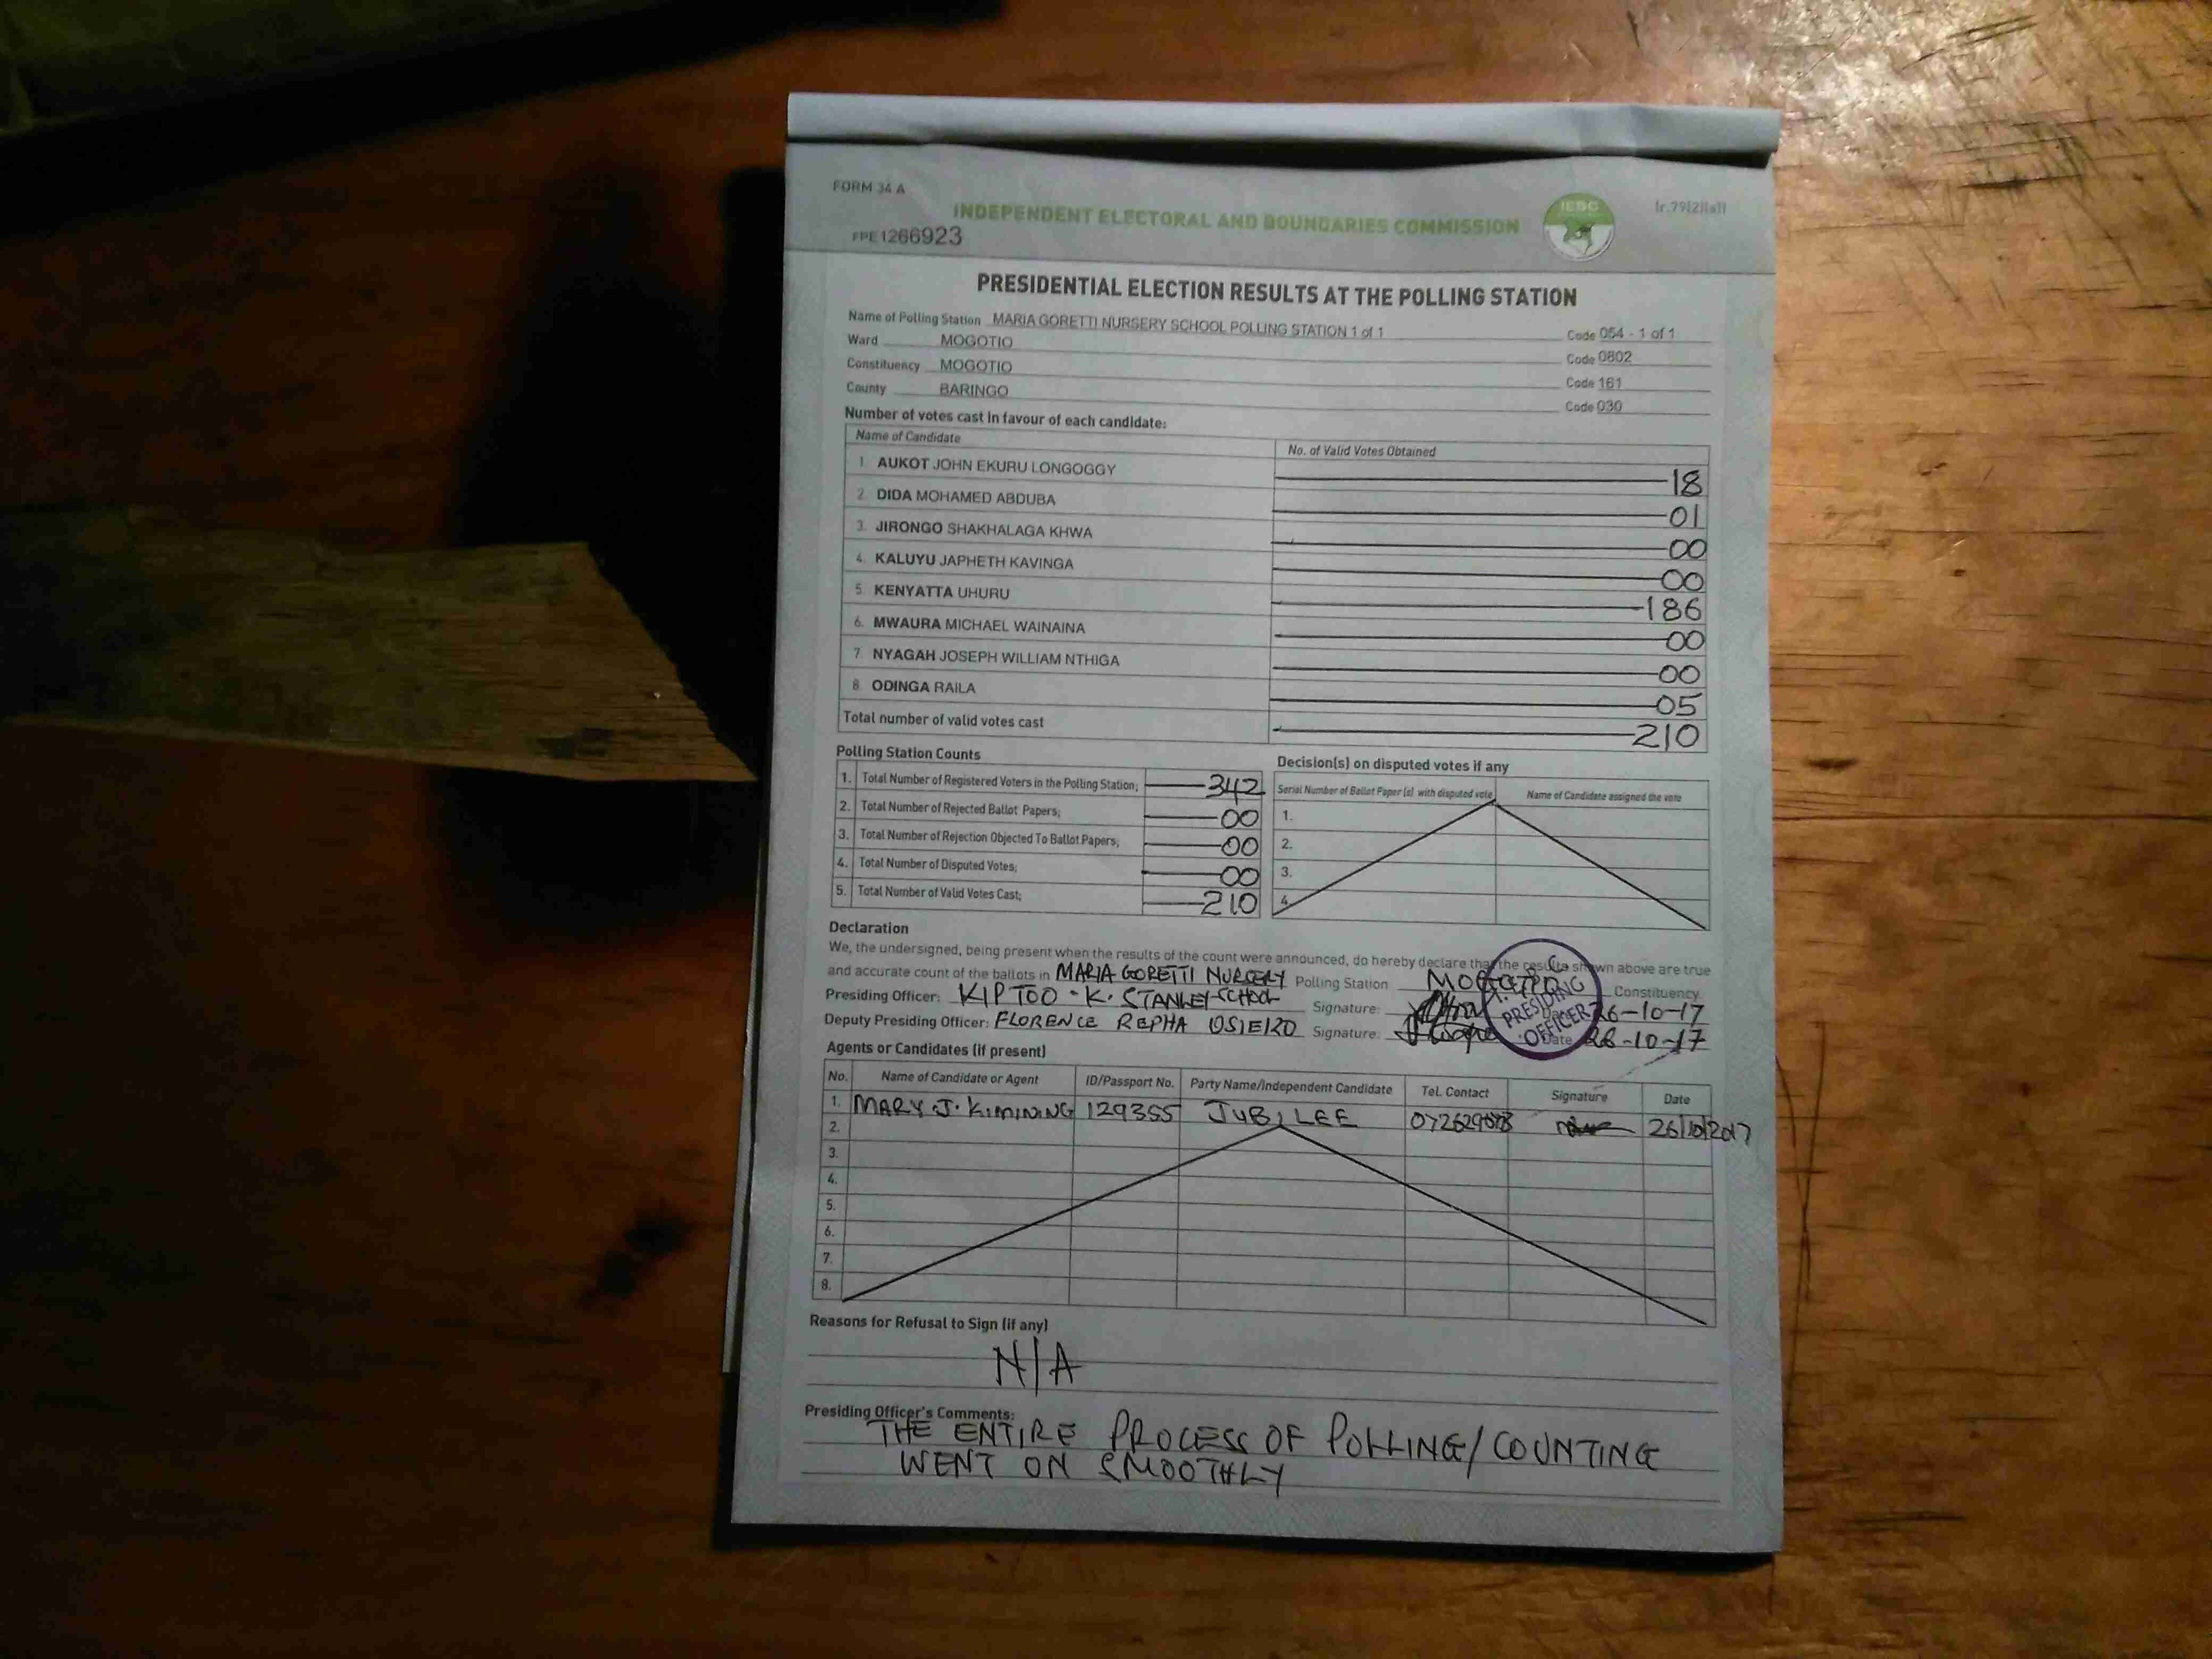 FORM 34 A
INDEPENDENT ELECTORAL AND BOUNDARIES COMMISSION
IEBC
(r.79(2)(a))
FPE1266923
PRESIDENTIAL ELECTION RESULTS AT THE POLLING STATION
Name of Polling Station MARIA GORETTI NURSERY SCHOOL POLLING STATION 1 of 1 Code 054 - 1 of 1
Ward MOGOTIO Code 0802
Constituency MOGOTIO Code 161
County BARINGO Code 030
Number of votes cast in favour of each candidate:
Name of Candidate No. of Valid Votes Obtained
1 AUKOT JOHN EKURU LONGOGGY 18
2. DIDA MOHAMED ABDUBA 01
3. JIRONGO SHAKHALAGA KHWA 00
4. KALUYU JAPHETH KAVINGA 00
5. KENYATTA UHURU 186
6. MWAURA MICHAEL WAINAINA 00
7. NYAGAH JOSEPH WILLIAM NTHIGA 00
8. ODINGA RAILA 05
Total number of valid votes cast 210
Polling Station Counts
1. Total Number of Registered Voters in the Polling Station; 342
2. Total Number of Rejected Ballot Papers; 00
3. Total Number of Rejection Objected To Ballot Papers; 00
4. Total Number of Disputed Votes; 00
5. Total Number of Valid Votes Cast; 210
Decision(s) on disputed votes if any
Serial Number of Ballot Paper (s) with disputed vote Name of Candidate assigned the vote
1.
2.
3.
4.
Declaration
We, the undersigned, being present when the results of the count were announced, do hereby declare that the results shown above are true
and accurate count of the ballots in MARIA GORETTI NURSERY Polling Station MOGOTIO Constituency
Presiding Officer: KIPTOO - K. STANLEY SCHOOL Signature: Date 26-10-17
Deputy Presiding Officer: FLORENCE REPHA OSIEKO Signature: Date 26-10-17
PRESIDING
OFFICER
Agents or Candidates (if present)
No. Name of Candidate or Agent ID/Passport No. Party Name/Independent Candidate Tel. Contact Signature Date
1. MARY J. KIMINING 129355 JUBILEE 26/10/2017
2.
3.
4.
5.
6.
7.
8.
Reasons for Refusal to Sign (if any)
N/A
Presiding Officer's Comments:
THE ENTIRE PROCESS OF POLLING/COUNTING
WENT ON SMOOTHLY